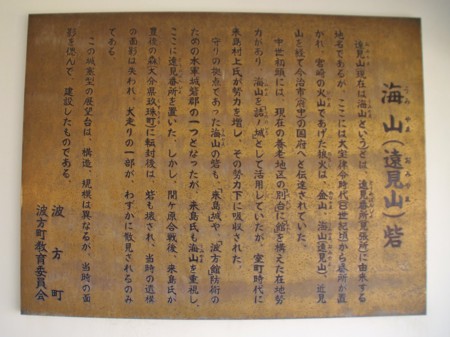 海山(遠見山)砦
うみやま おみやま
遠見山(現在は海山という)とは、遠見番所見張所に由来する
地名であるが、ここには大宝律令時代(8世紀頃)から番所が置
かれ、宮崎の火山であげた狼火は、金山、海山(遠見山)、近見
山を経て今治市府中の国府へと伝達されていた。
中世初頭には、現在の養老地区の別台に館を構えた在地勢
力があり、海山を詰ノ城として活用していたが、室町時代に
来島村上氏が勢力を増し、その勢力下に吸収された。
守りの拠点であった海山の砦も、「来島」城や、「波方館」防術の
ための水軍城砦郡の一つとなったが、来島氏も海山を重視し、
ここに遠見番所を置いた。しかし、関ヶ原合戦後、来島氏が
豊後の森(大分県玖珠町)に転封後は、砦も壊され、当時の遺構
の面影は失われ、犬走りの一部が、わずかに散見されるのみ
である
この城塞型の展望台は、構造、規模は異なるが、当時の面
影を偲んで、建設したものである。
波方町
波方町教育委員会